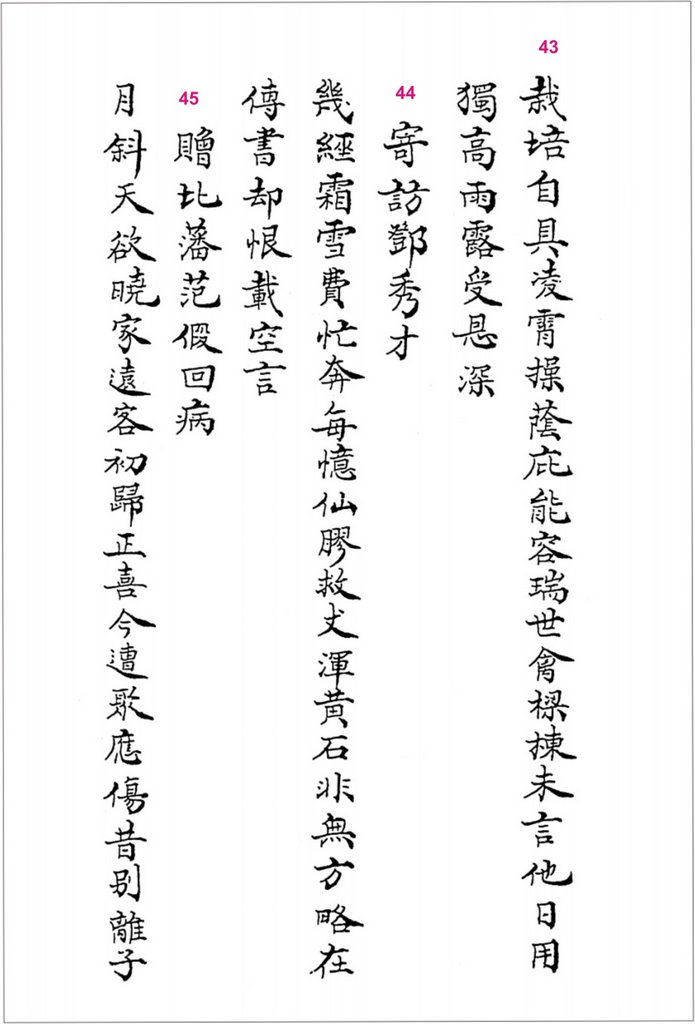 43
栽培自具凌霄操蔭庇能容瑞世禽樑棟未言他日用
獨高雨露受恩深
44
寄訪鄧秀才
幾經霜雪費忙奔每憶仙膠救丈渾黃石非無方略在
傳書却恨載空言
45
贈比藩范假回病
月斜天欲曉家遠客初歸正喜今遭聚應傷昔別離子